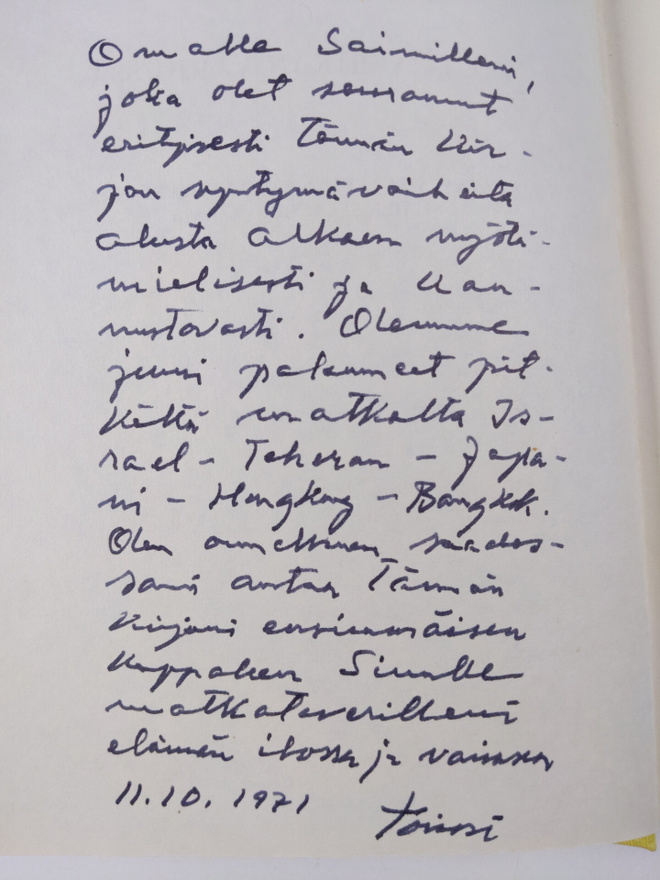 Omalle Saimilleni,
joka olet seurannut
erityisesti tämän kir-
jan syntymävaiheita
alusta alkaen myötä-
mielisesti ja kan-
nustavasti. Olemme
juuri palanneet pit-
kältä matkalta Is-
rael - Teheran - Japa-
ni - Hongkong - Bangkok.
Olen onnellinen saades-
sani antaa Tämän
kirjani ensimmäisen
kappaleen Sinulle
matkatoverilleni
elämän ilossa ja vaivassa
11.10.1971